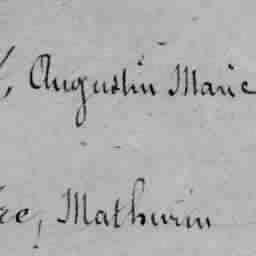 , Augustin Marie
ee, Mathurin